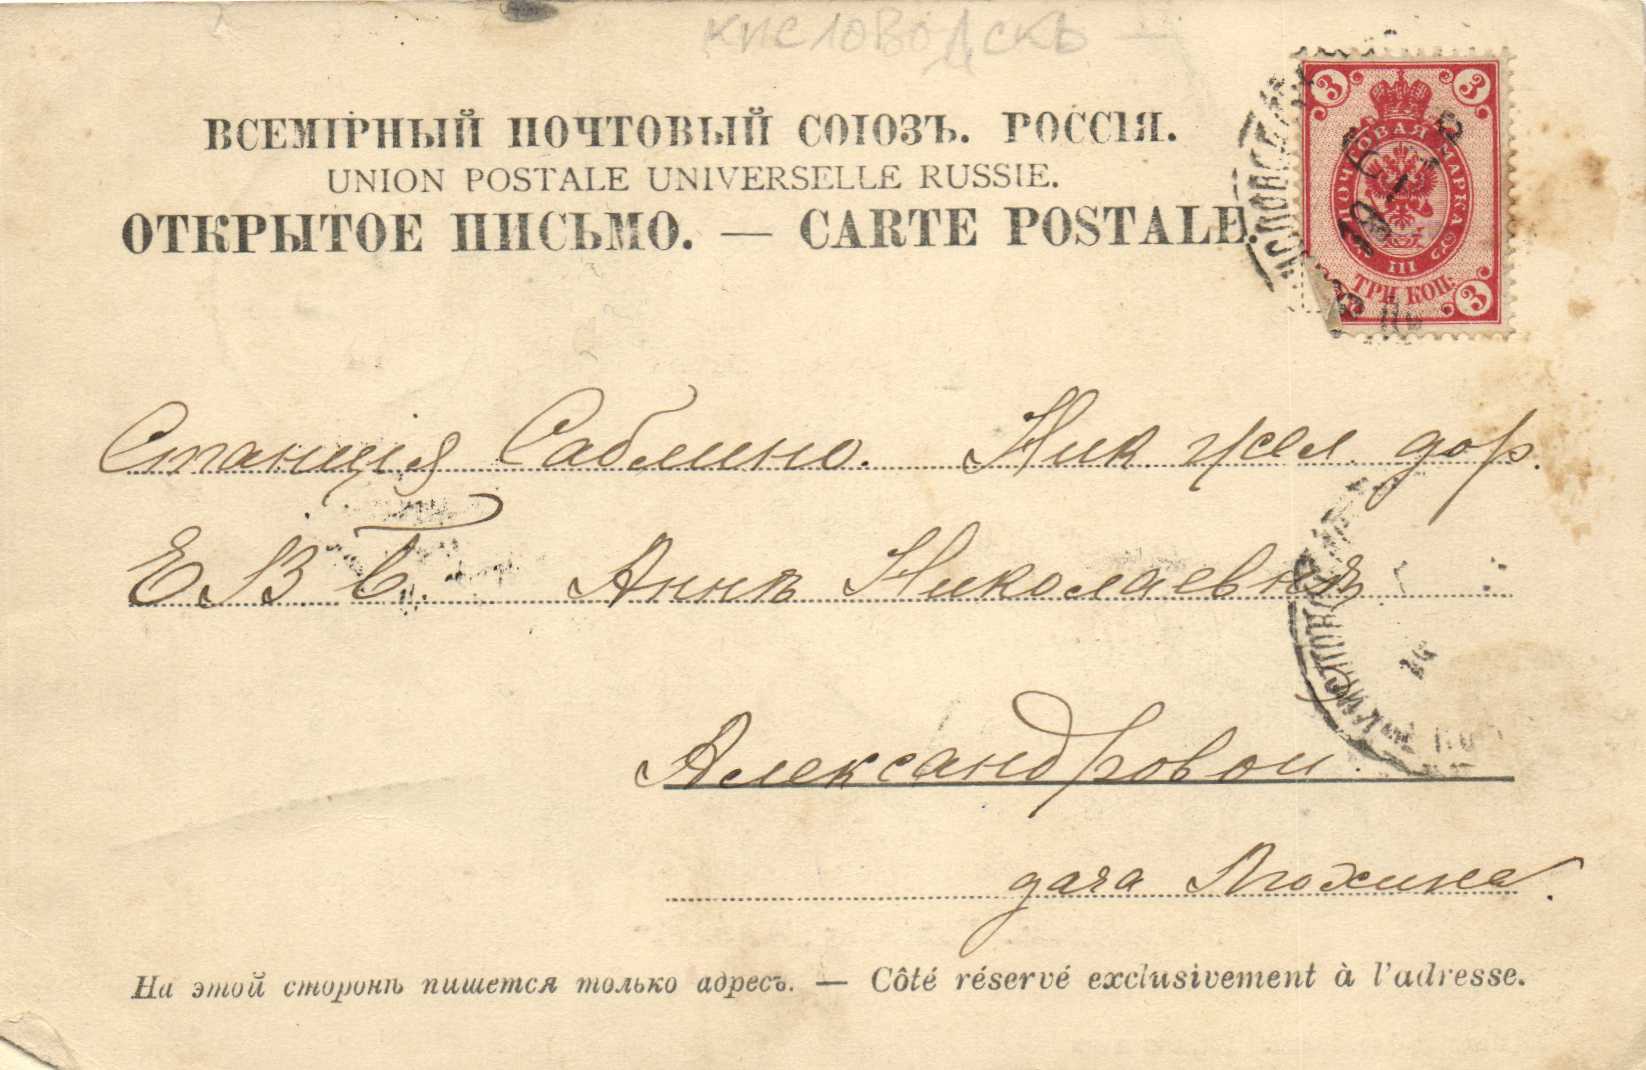 КИСЛОВОДСКЪ —
ВСЕМІРНЫЙ ПОЧТОВЫЙ СОЮЗЪ. РОССІЯ.
UNION POSTALE UNIVERSELLE RUSSIE.
ОТКРЫТОЕ ПИСЬМО. — CARTE POSTALE.
3 3
ПОЧТОВАЯ МАРКА
III
ТРИ КОП.
3
Станція Саблино. Ник. жел. дор.
Е В Б. Аннѣ Николаевнѣ
Александровой
дача
На этой сторонѣ пишется только адресъ. — Côté réservé exclusivement à l'adresse.